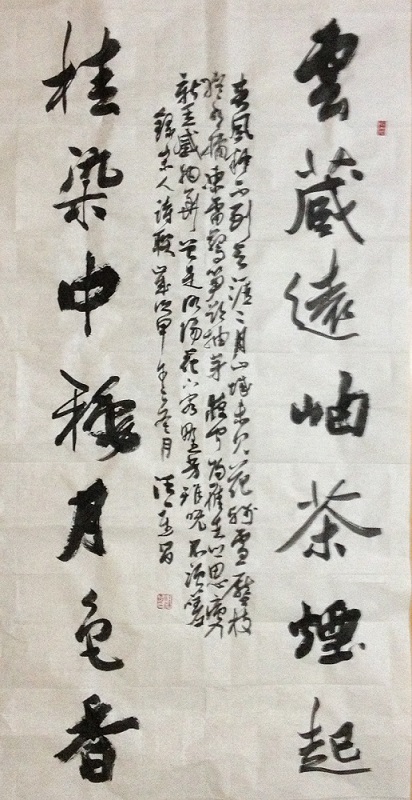 雲藏遠岫茶煙起
春風疑不到天涯二月山城未見花殘雪壓枝
猶有橘凍雷驚筍欲抽芽夜聞歸雁生鄉思病入
新年感物華曾是洛陽花下客野芳雖晚不須嗟
錄宋人詩聯歲次甲午冬月
桂染中穐月色香